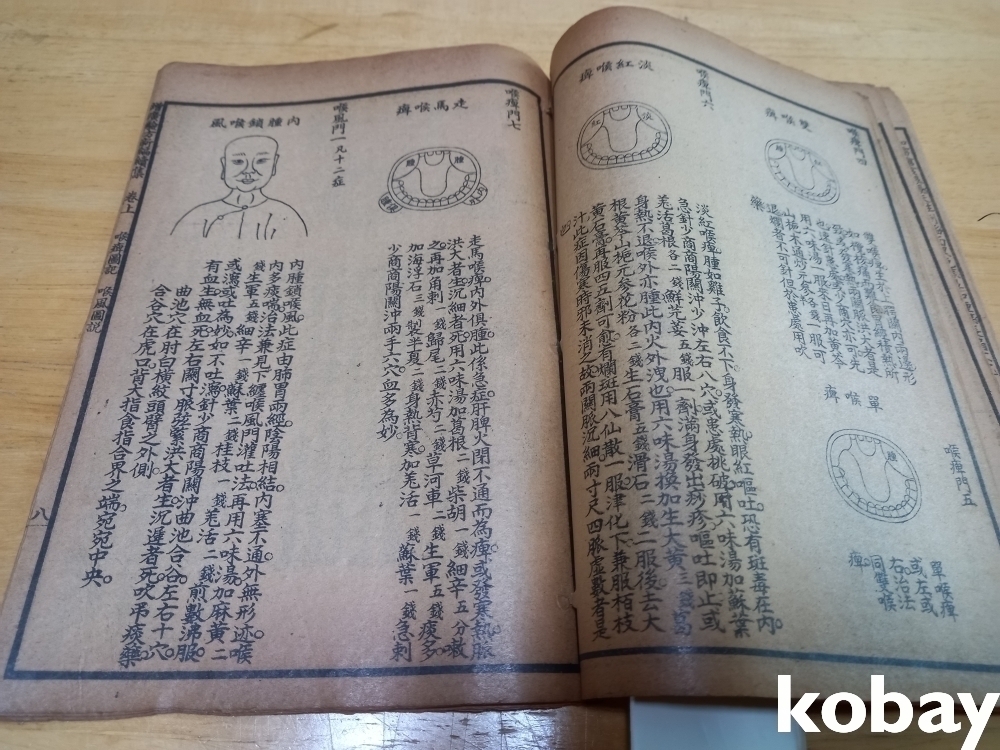 喉痺門四
雙喉痺
腫
腫
單喉痺
喉痺門五
腫
單喉痺
或左或
右治法
同雙喉
痺
喉痺門六
淡紅喉痺
淡
紅
淡紅喉痺腫如雞子飲食不下身發寒熱眼紅嘔吐恐有斑毒在內
急針少商商陽關沖少沖左右八穴或患處挑破用六味湯加蘇葉
羌活葛根各二錢鮮芫荽五錢服一劑滿身發出痧疹嘔吐即止或
身熱不退喉外亦腫此內火外洩也用六味湯換加生大黃三錢葛
根黃芩山梔元參花粉各二錢生石膏五錢滑石二錢二服後去大
黃石膏再服四五劑可愈有爛斑用八仙散一服津化下兼服柏枝
汁此症因傷寒時邪未消之故兩關脈沉細兩寸尺四脈虛數者是
也
喉痺門七
走馬喉痺
腫
腫
外腫
走馬喉痺內外俱腫此係急症肝脾火閉不通而為痺或發寒熱脈
洪大者生沉細者死用六味湯加葛根二錢柴胡一錢細辛五分漱
之再加角刺一錢歸尾二錢赤芍二錢草河車二錢生軍五錢痰多
加海浮石三錢製半夏二錢身熱背寒加羌活一錢蘇葉一錢急刺
少商商陽關沖兩手六穴血多為妙
喉風門一凡十二症
內腫鎖喉風
內腫鎖喉風此症由肺胃兩經陰陽相結內塞不通外無形迹喉
內多痰喘治法兼見下纏喉風門灌吐法再用六味湯加麻黃二
錢生軍五錢細辛一錢蘇葉二錢桂枝一錢羌活二錢煎數沸服
或瀉或吐為妙如不吐瀉針少商商陽關沖曲池合谷左右十穴
有血生無血死左右關寸脈弦緊洪大者生沉遲者死吹吊痰藥
曲池穴在肘曰橫紋頭臂之外側
合谷穴在虎口背大指食指合界之端宛宛中央
卷上
喉痺圖說
喉風圖說
八
kobay